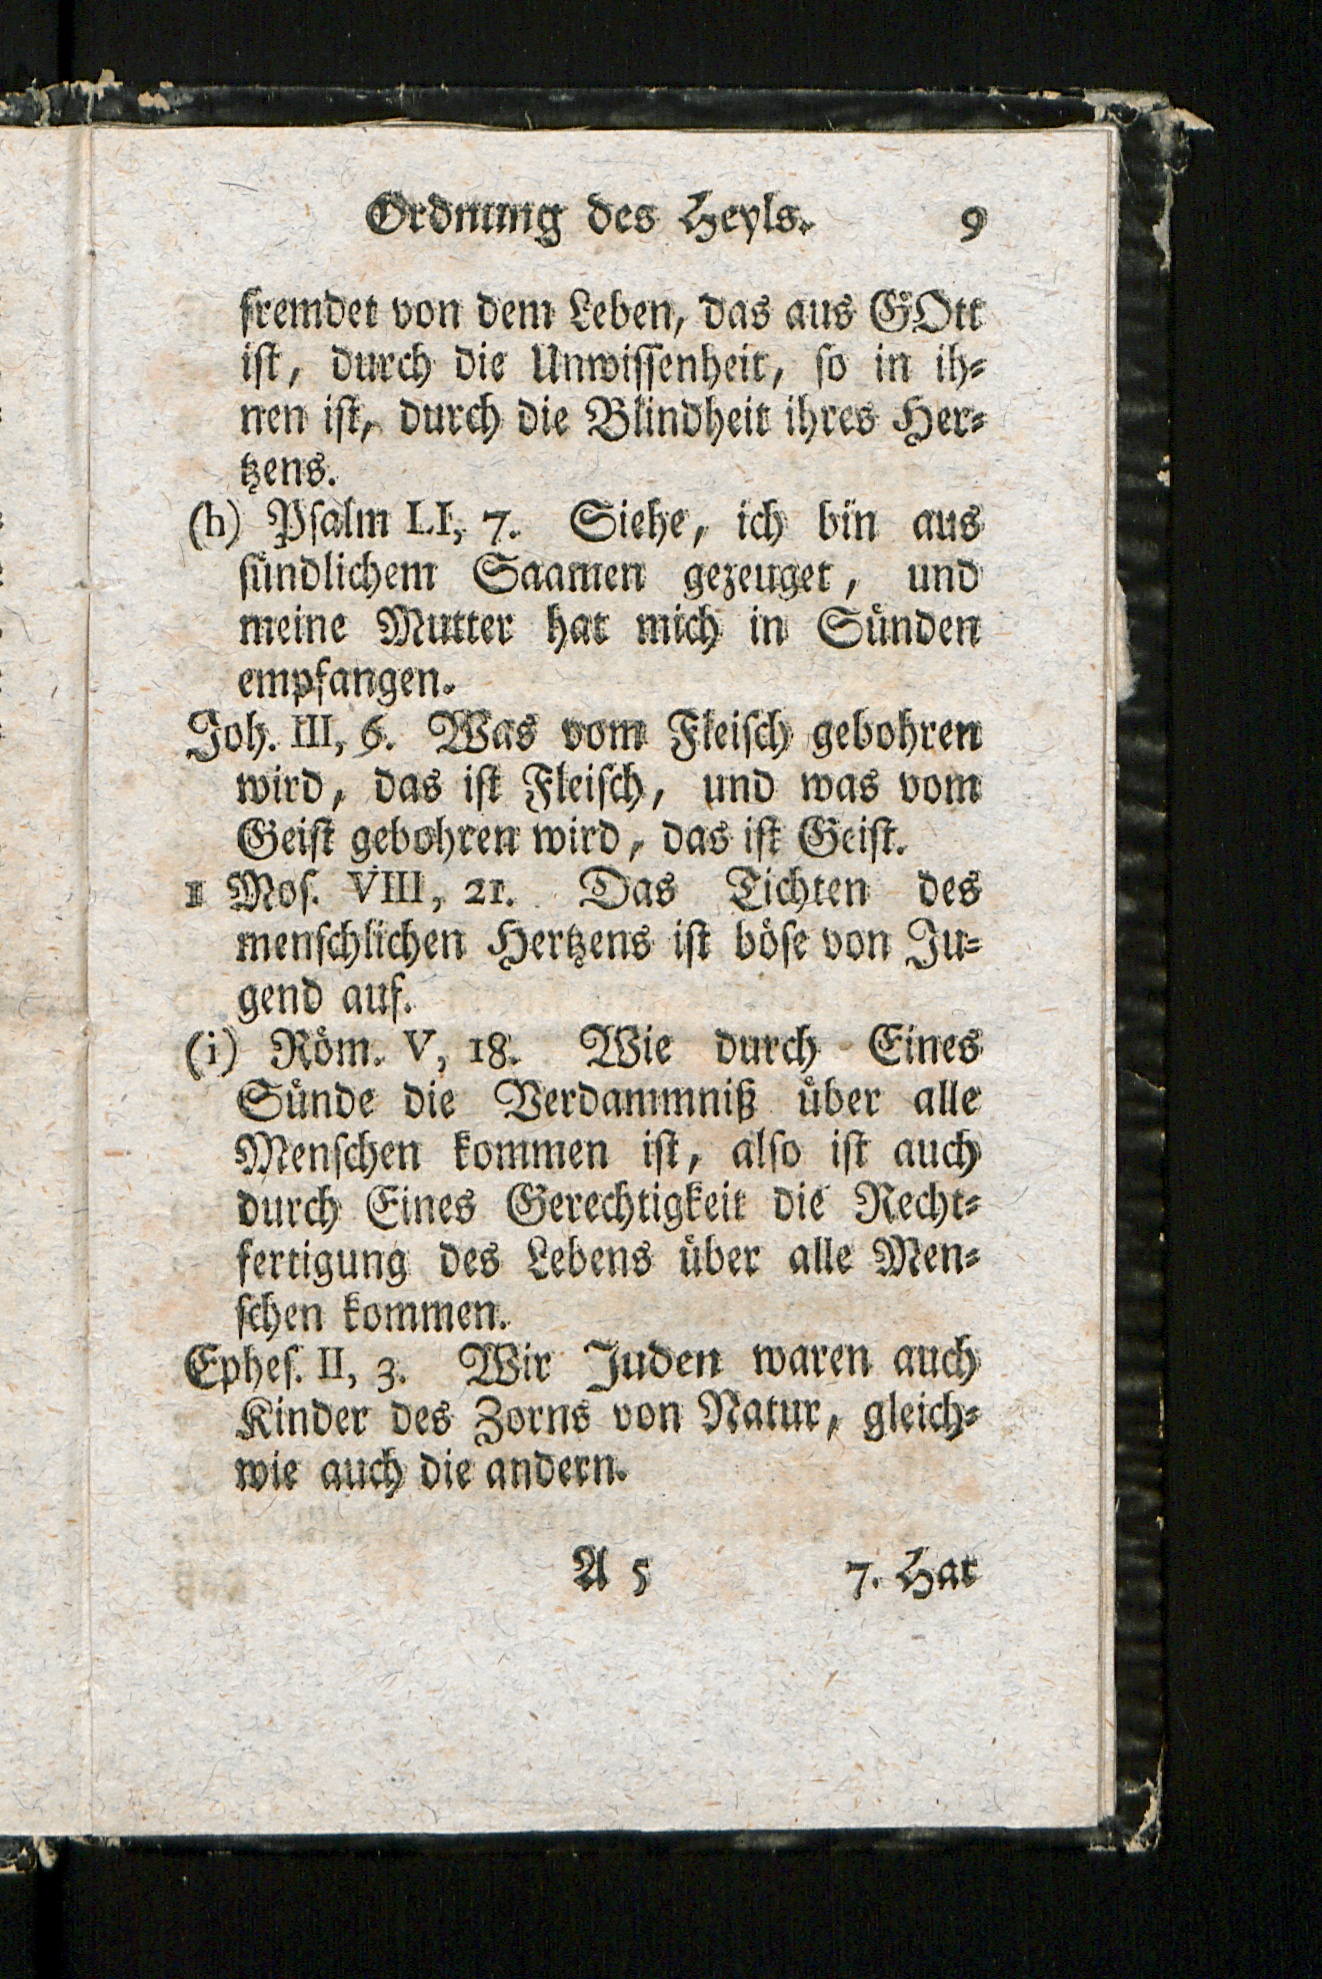 Ordnung des Heyls. 9
fremdet von dem Leben, das aus GOtt
ist, durch die Unwissenheit, so in ih⸗
nen ist, durch die Blindheit ihres Her⸗
tzens.
(h) Psalm LI, 7. Siehe, ich bin aus
sündlichem Saamen gezeuget, und
meine Mutter hat mich in Sünden
empfangen.
Joh. III, 6. Was vom Fleisch gebohren
wird, das ist Fleisch, und was vom
Geist gebohren wird, das ist Geist.
1 Mos. VIII, 21. Das Tichten des
menschlichen Hertzens ist böse von Ju⸗
gend auf.
(i) Röm. V, 18. Wie durch Eines
Sünde die Verdammniß über alle
Menschen kommen ist, also ist auch
durch Eines Gerechtigkeit die Recht⸗
fertigung des Lebens über alle Men⸗
schen kommen.
Ephes. II, 3. Wir Juden waren auch
Kinder des Zorns von Natur, gleich⸗
wie auch die andern.
A 5 7. Hat